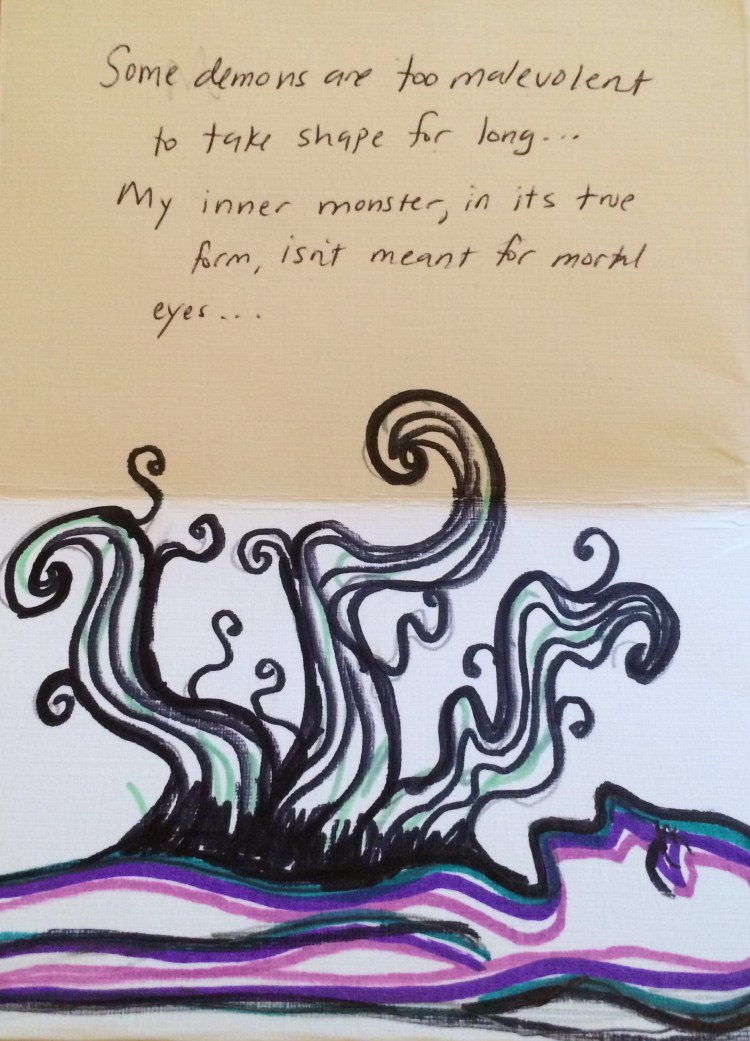 Some demons are too malevolent
to take shape for long...
My inner monster, in its true
form, isn't meant for mortal
eyes...